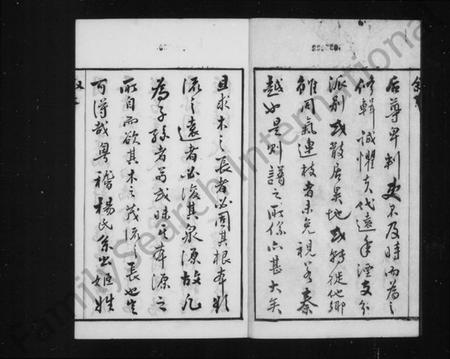 后尊卑判更不及時而為之
修輯誠懼夫代遠年湮支分
派別或散居異地或轉徙他鄉
雖同氣連枝者未免視若秦
越如是則譜之所係亦甚大矣
且求木之長者必固其根本欲
流之遠者必浚其泉源故凡
為子孫者苟或昧其本源之
所自而欲其木之茂流之長也豈
可得哉粵稽楊氏系出姬姓
FamilySearch International